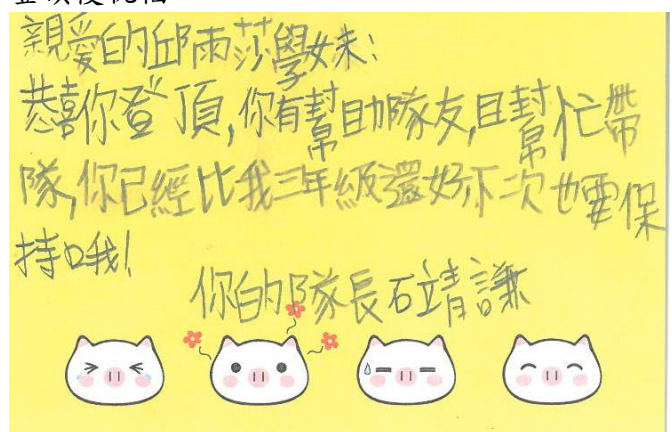 親愛的邱雨莎學妹:
恭喜你登頂,你有幫助隊友,且幫忙帶
隊,你已經比我三年級還好下次也要保
持哦!
你的隊長石靖謙